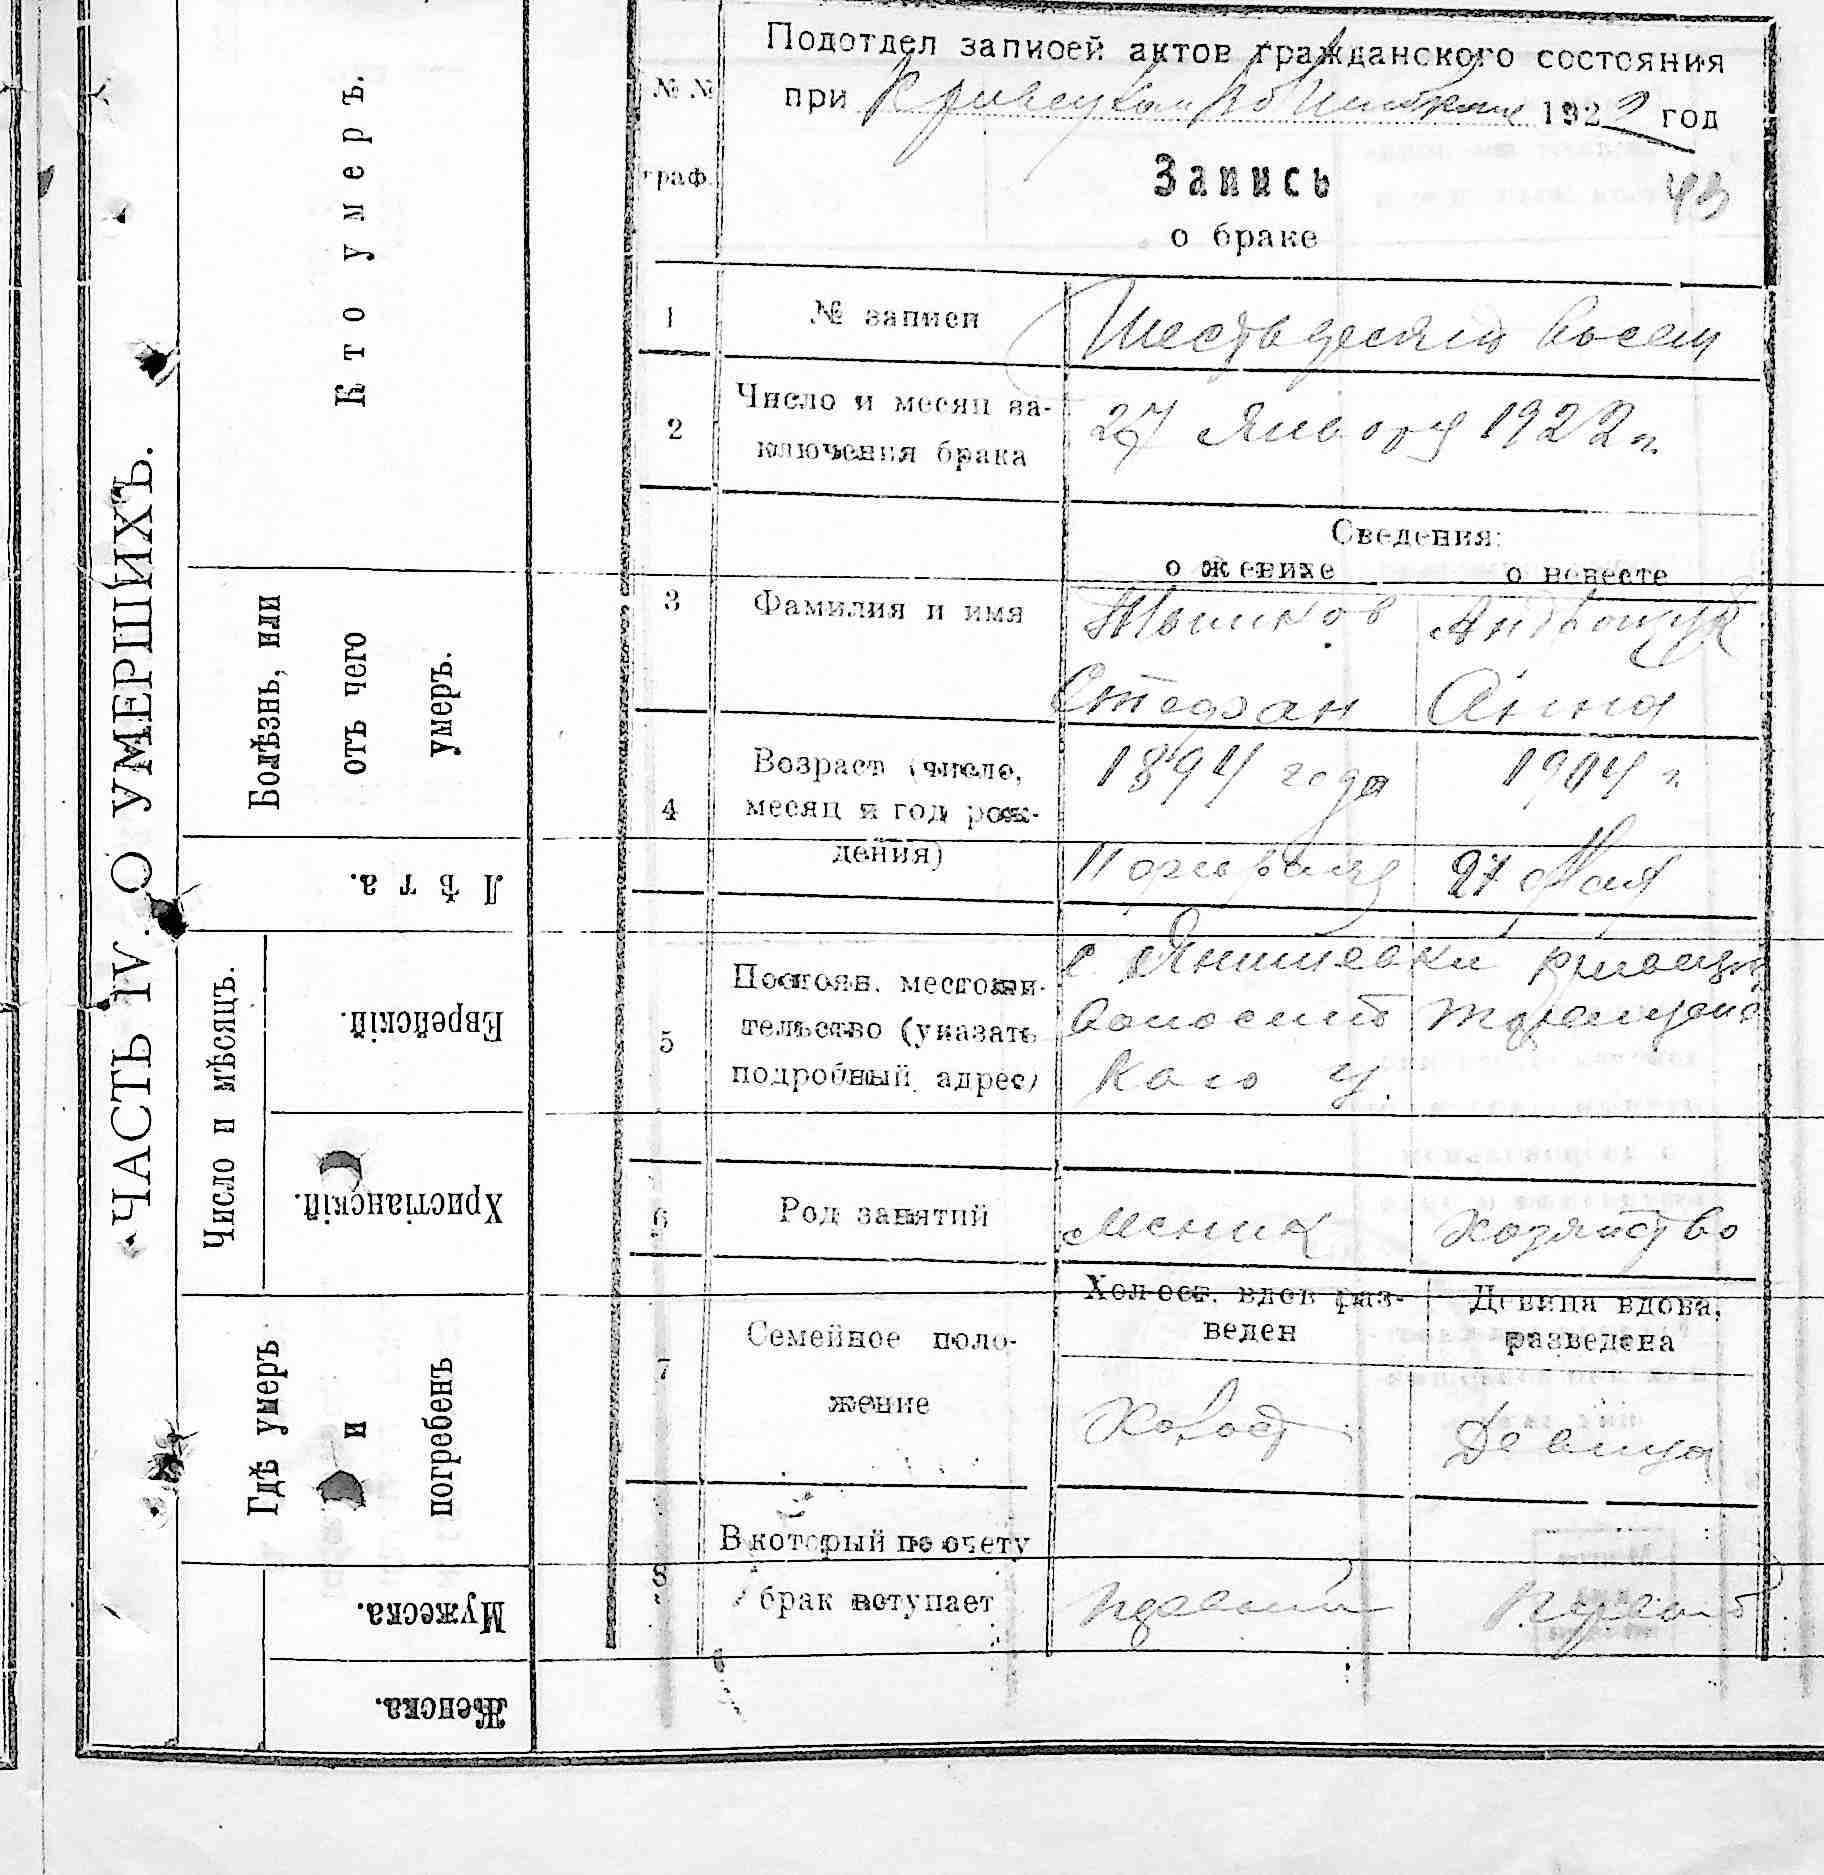 ЧАСТЬ IV. О УМЕРШИХЪ.
Кто умеръ.
Болѣзнь, или
отъ чего
умеръ.
Лѣта.
Число и мѣсяцъ.
Еврейскій.
Христіанскій.
Гдѣ умеръ
и
погребенъ
Мужеска.
Женска.
Подотдел записей актов гражданского состояния
при 192 год
№ №
граф.
Запись
43
о браке
1 № записи Шестьдесят восем
2 Число и месяц за-
ключения брака
27 Января 1922 г.
Сведения:
о женихе о невесте
3 Фамилия и имя
Стефан Анна
4 Возраст (число,
месяц и год рож-
дения)
1894 года 1904 г
11 февраля 27 Мая
5 Постоян. местожи-
тельство (указать
подробный адрес)
с. Янишевки
волости
кого у.
6 Род занятий хозяйство
7 Семейное поло-
жение
Холост. вдов раз-
веден
Девица вдова,
разведена
Холост Девица
8 В который по счету
брак вступает
первый